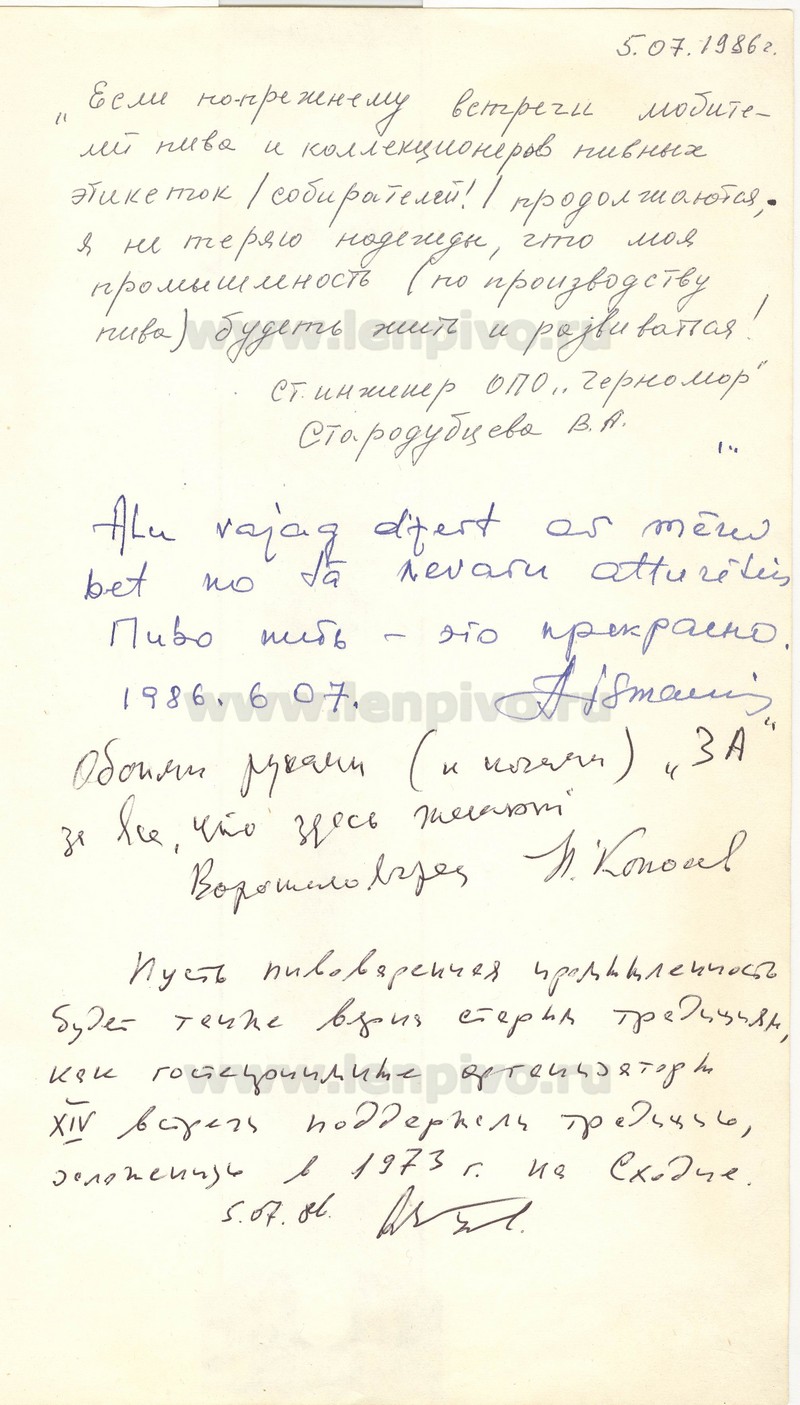 5.07.1986г.
„Если по-прежнему встречи любите-
лей пива и коллекционеров пивных
этикеток /собирателей!/ продолжаются,
я не теряю надежды, что моя
промышленность (по производству
пива) будеть жить и развиваться!
ст. инженер ОПО „Черномор"
Стародубцева В.А.
Alu vajag dzert ar mēru
bet no tā nevaru atturēties
Пиво пить – это прекрасно.
1986. 6 07.
Обоими руками (и ногами) „ЗА"
за все, что здесь желают
Ворошиловград
Пусть пивоваренная промышленность
будет также верна старым традициям,
как гостеприимные организаторы
XIV встречи поддержали традицию,
заложенную в 1973 г. на Сходне.
5.07.86.
www.lenpivo.ru
www.lenpivo.ru
www.lenpivo.ru